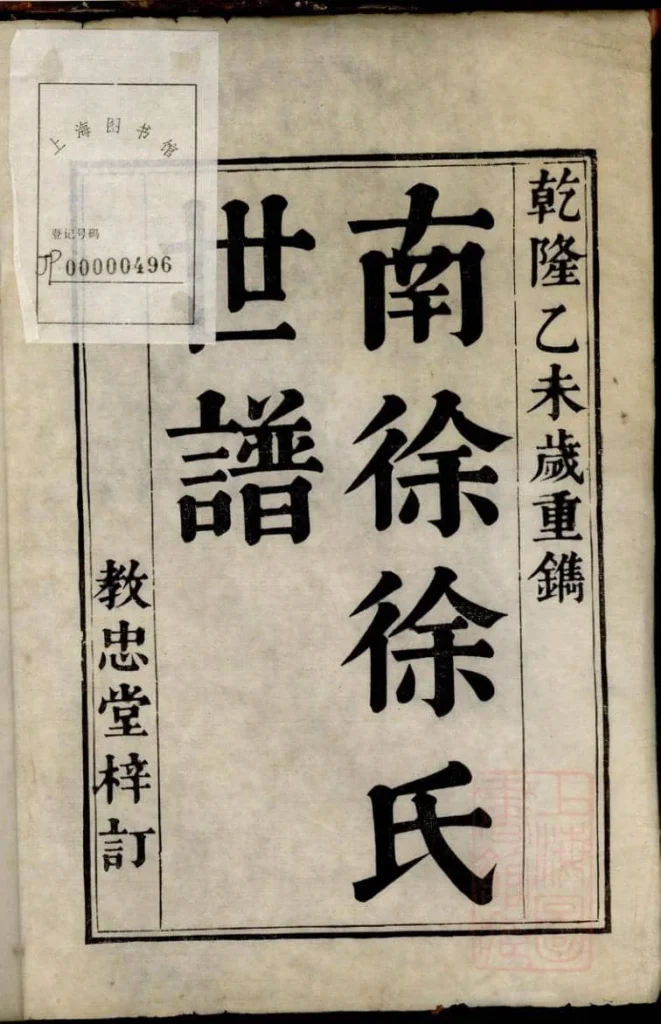 乾隆乙未歲重鐫
南徐徐氏
世譜
教忠堂梓訂
上海图书馆
登记号码
JP 00000496